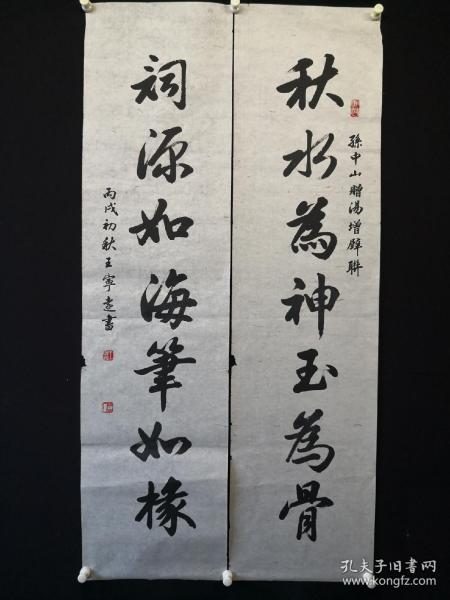 秋水為神玉為骨
孫中山贈湯增璧聯
詞源如海筆如椽
丙戌初秋王寧遠書
孔夫子旧书网
www.kongfz.com